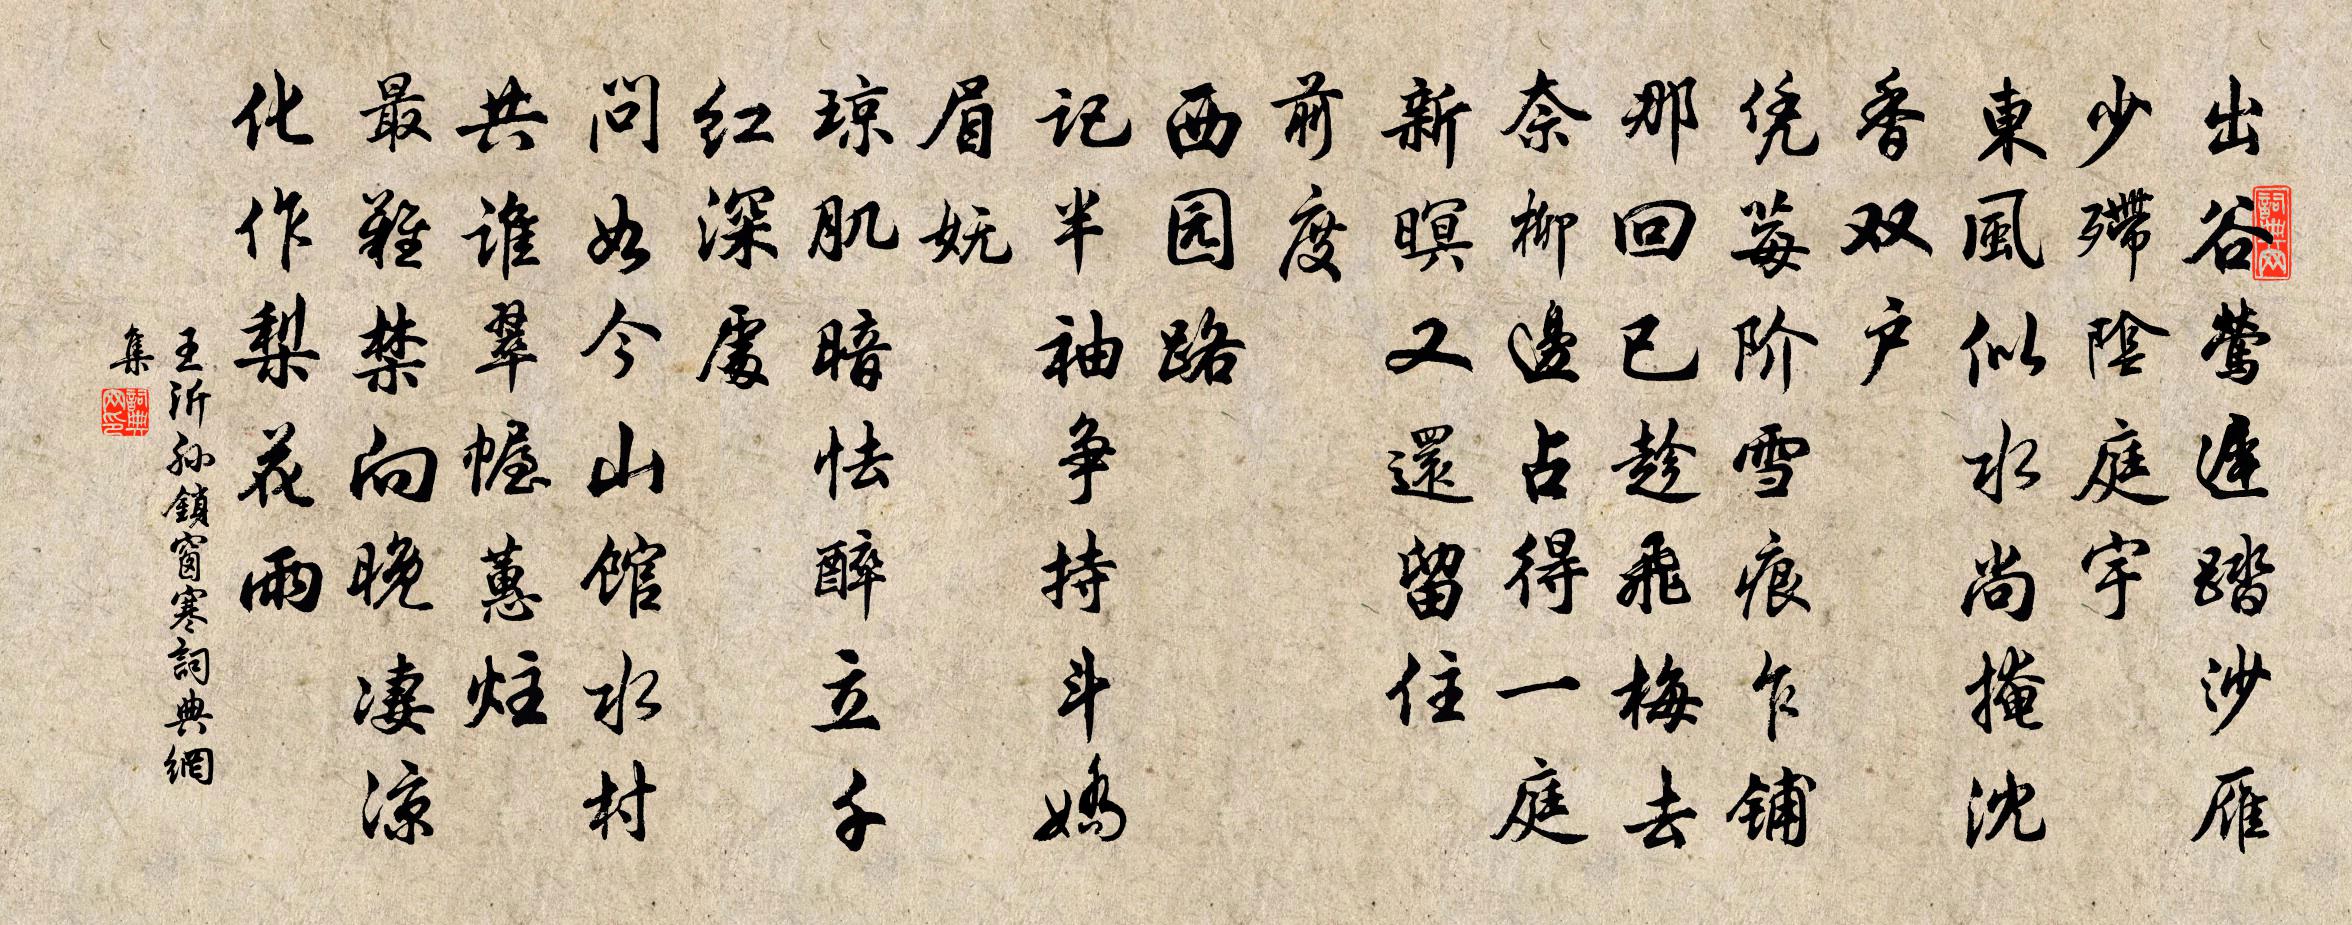 出谷莺遲踏沙雁
少殢陰庭宇
東風似水尚掩沈
香双户
凭莓阶雪痕乍铺
那回已趁飛梅去
奈柳邊占得一庭
新暝又還留住
前度
西园路
记半袖争持斗嬌
眉妩
琼肌暗怯醉立千
红深處
问如今山馆水村
共谁翠幄蕙炷
最難禁向晚凄凉
化作梨花雨
王沂孙鎖窗寒詞典網
集
詞典网
詞典网印